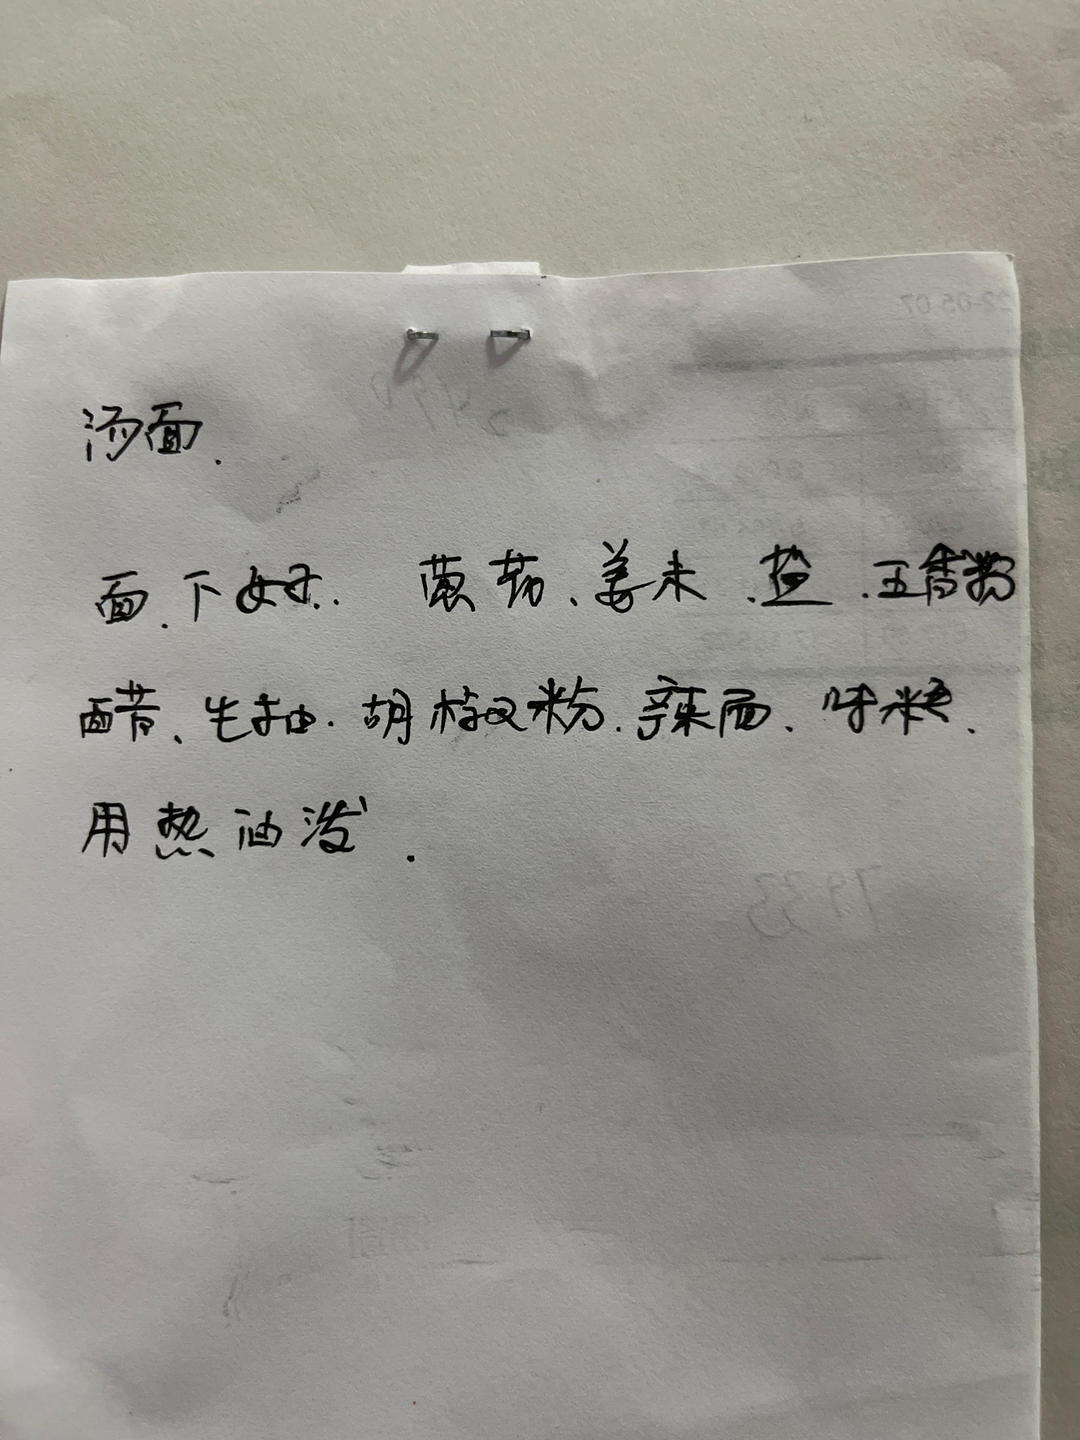 汤面.
面.下好. 葱蒜、姜末.盐.五香粉
醋、生抽.胡椒粉.辣面、味精、
用热油泼.
7933